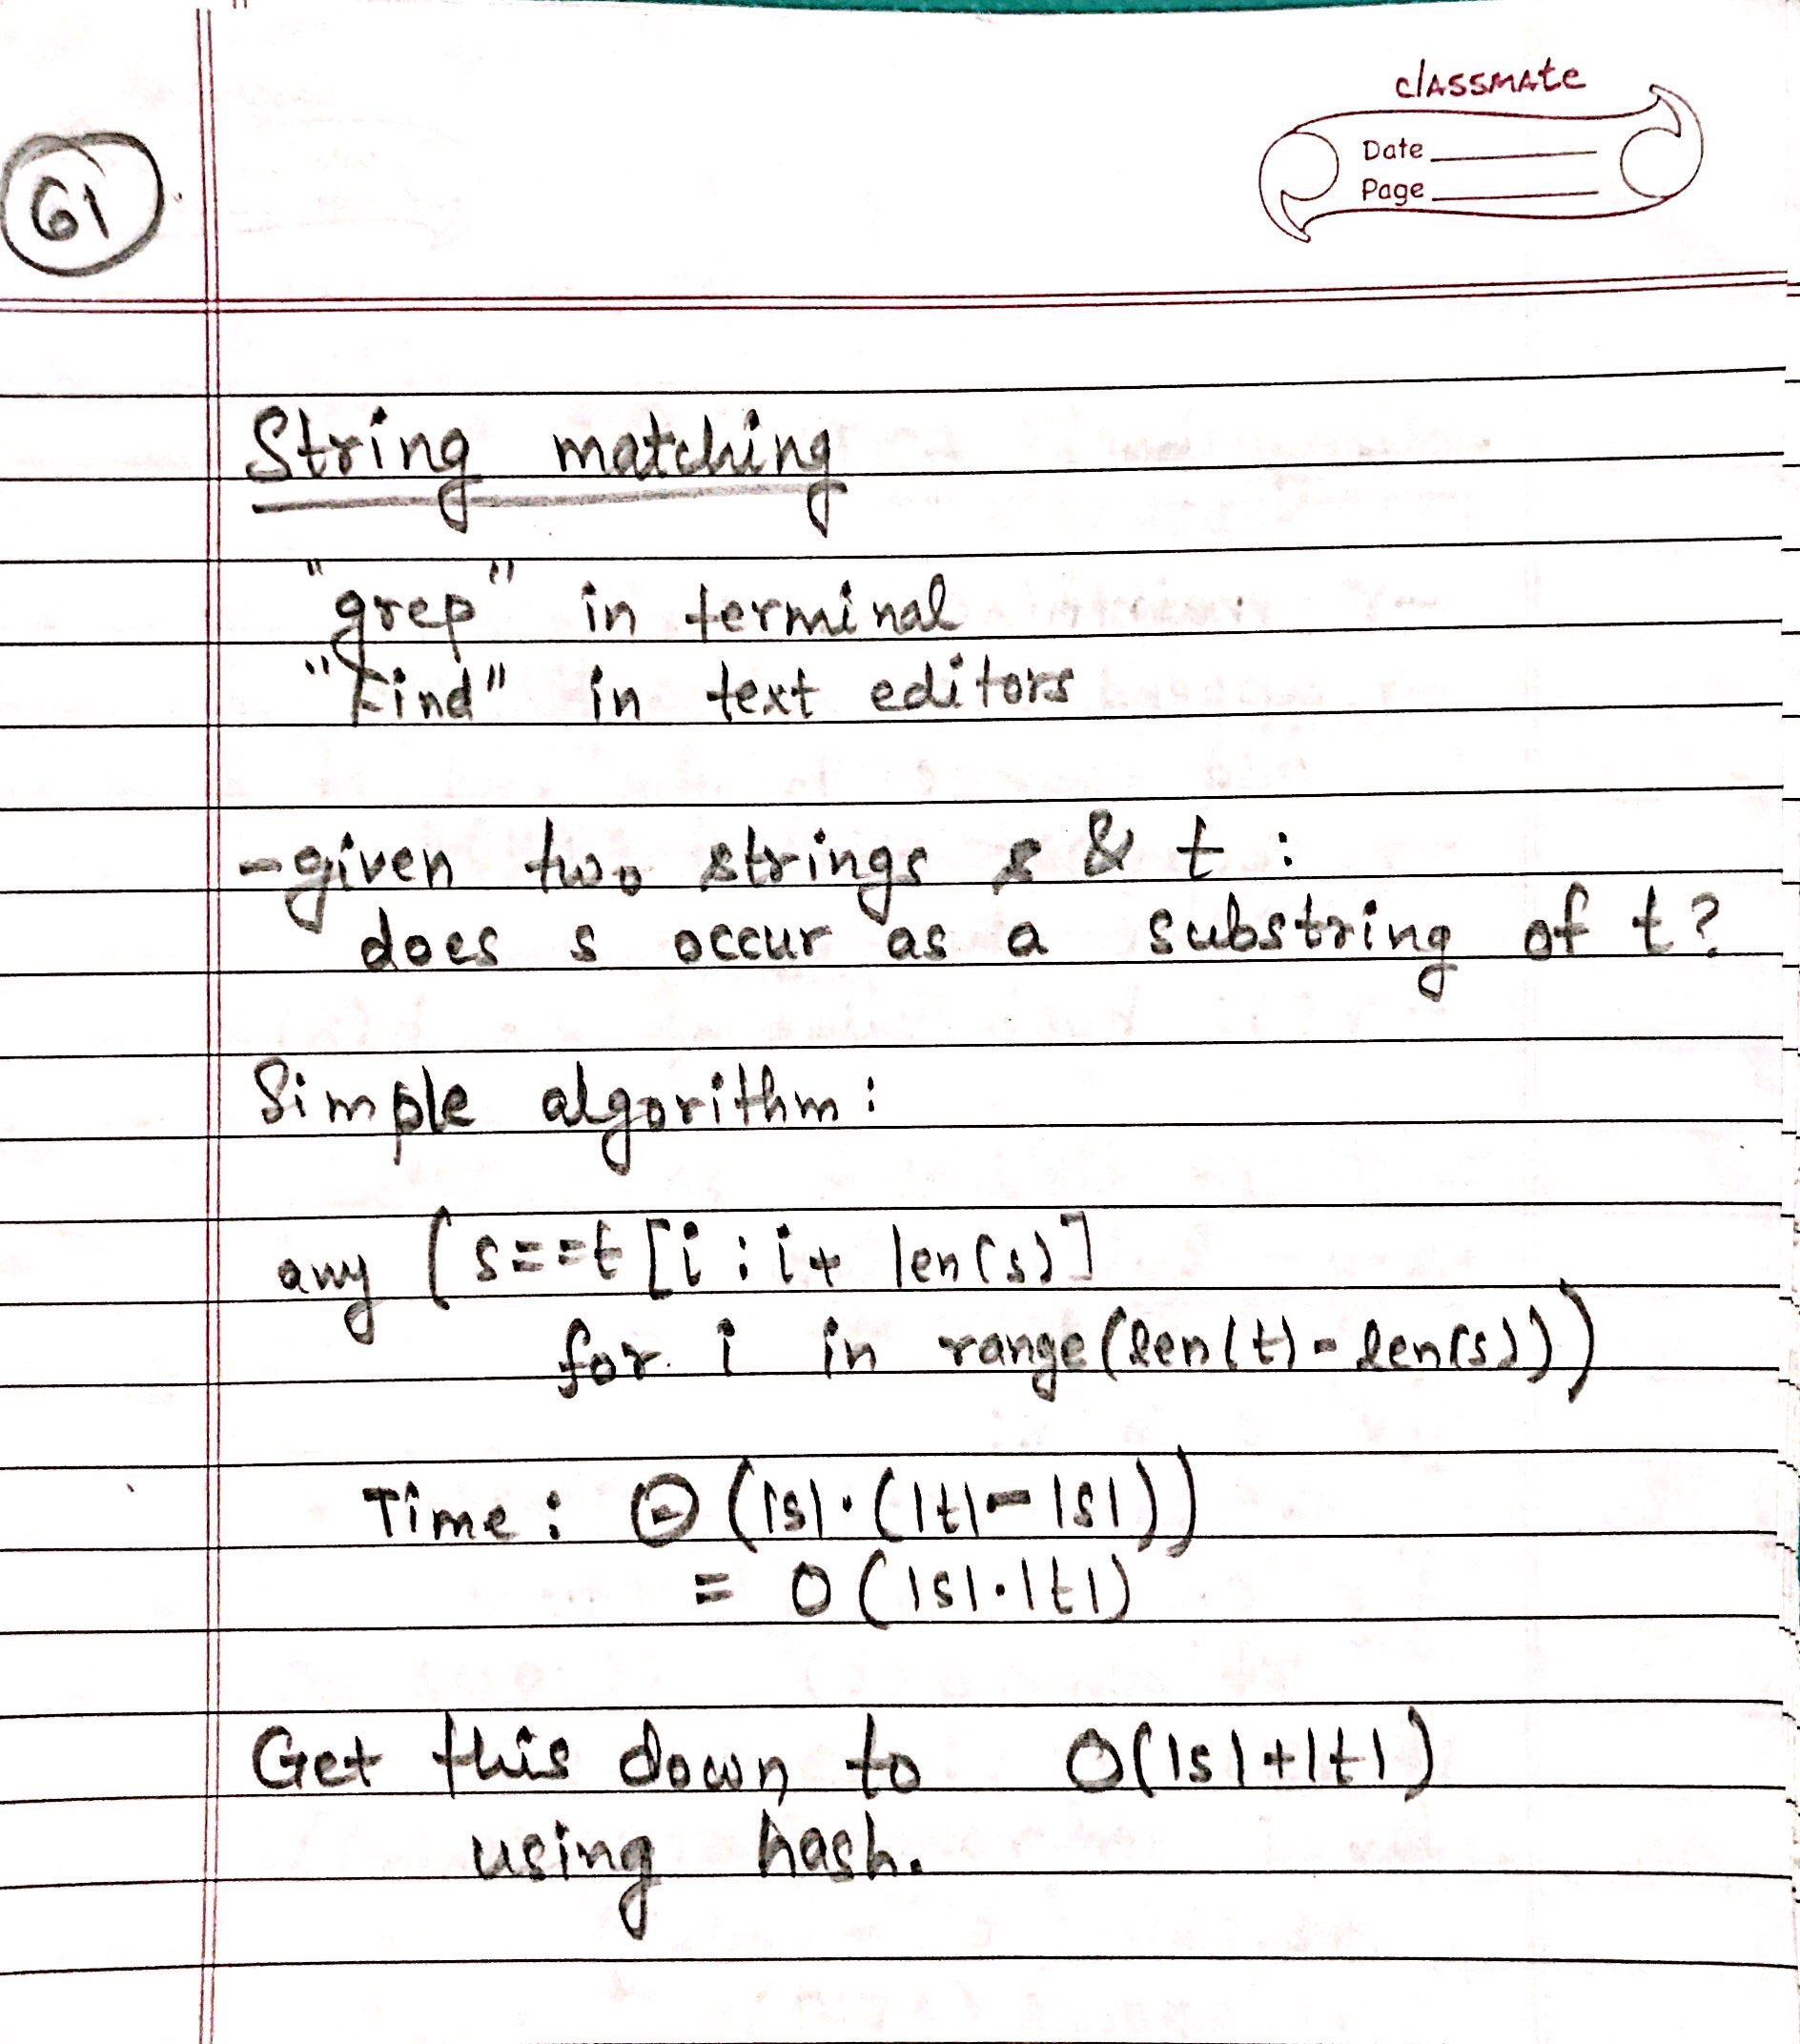 classmate
Date
Page
61
String matching
"grep" in terminal
"Find" in text editors
-given two strings s & t :
does s occur as a substring of t?
Simple algorithm:
any (s==t[i : i+ len(s)]
for i in range(len(t)-len(s)))
Time: Θ(|s|·(|t|-|s|))
= O(|s|·|t|)
Get this down to O(|s|+|t|)
using hash.